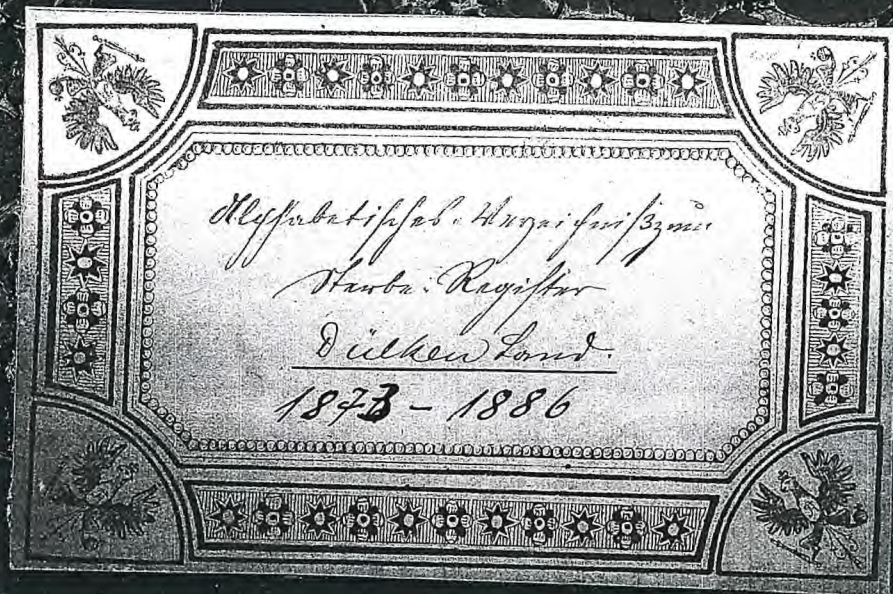 Alphabetisches Verzeichniß zum
Sterbe-Register
Dülken Land.
1873 - 1886